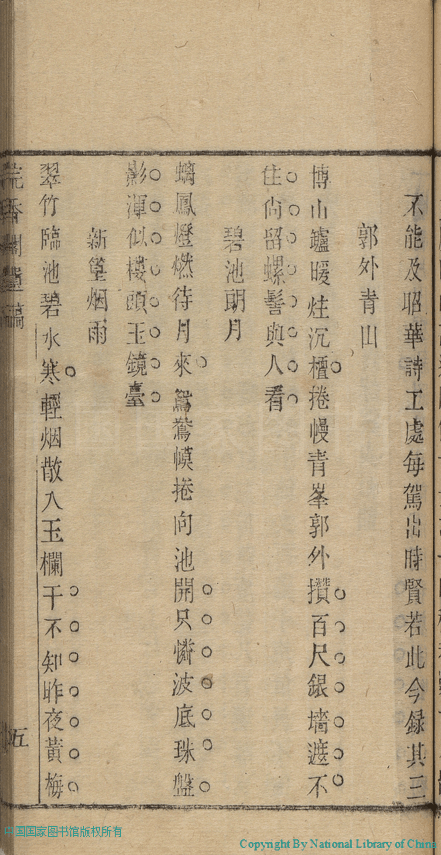 不能及昭華詩工處每駕出時賢若此今録其三
郭外青山
博山鑪暖炷沉檀捲幔青峯郭外攢百尺銀墻遮不
住尙留螺髻與人看
碧池朗月
螭鳳燈燃待月來鴛鴦幙捲向池開只憐波底珠盤
影渾似樓頭玉鏡臺
新篁烟雨
翠竹臨池碧水寒輕烟散入玉欄干不知昨夜黃梅
五
中国国家图书馆版权所有
Copyright By National Library of China